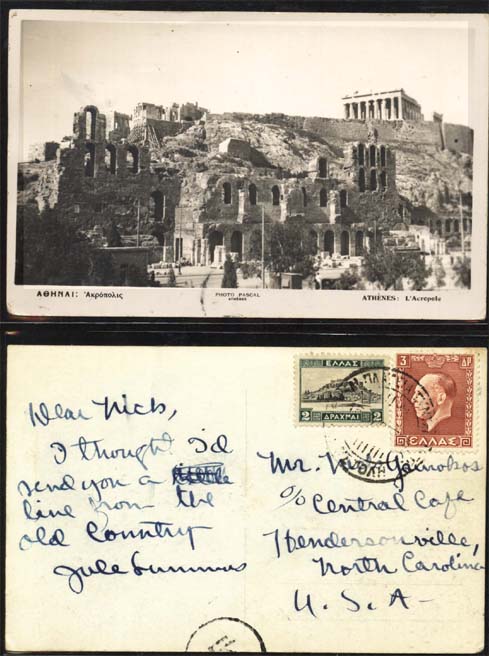 ΑΘΗΝΑΙ: Ἀκρόπολις
PHOTO PASCAL
ATHÈNES
ATHÈNES: L'Acropole
Dear Nick,
I thought I'd
send you a
line from the
old Country
Jule
ΕΛΛΑΣ
2 ΔΡΑΧΜΑΙ 2
3 ΔΡ.
ΕΛΛΑΣ
Mr. N.
c/o Central Cafe
Hendersonville,
North Carolina
U.S.A-